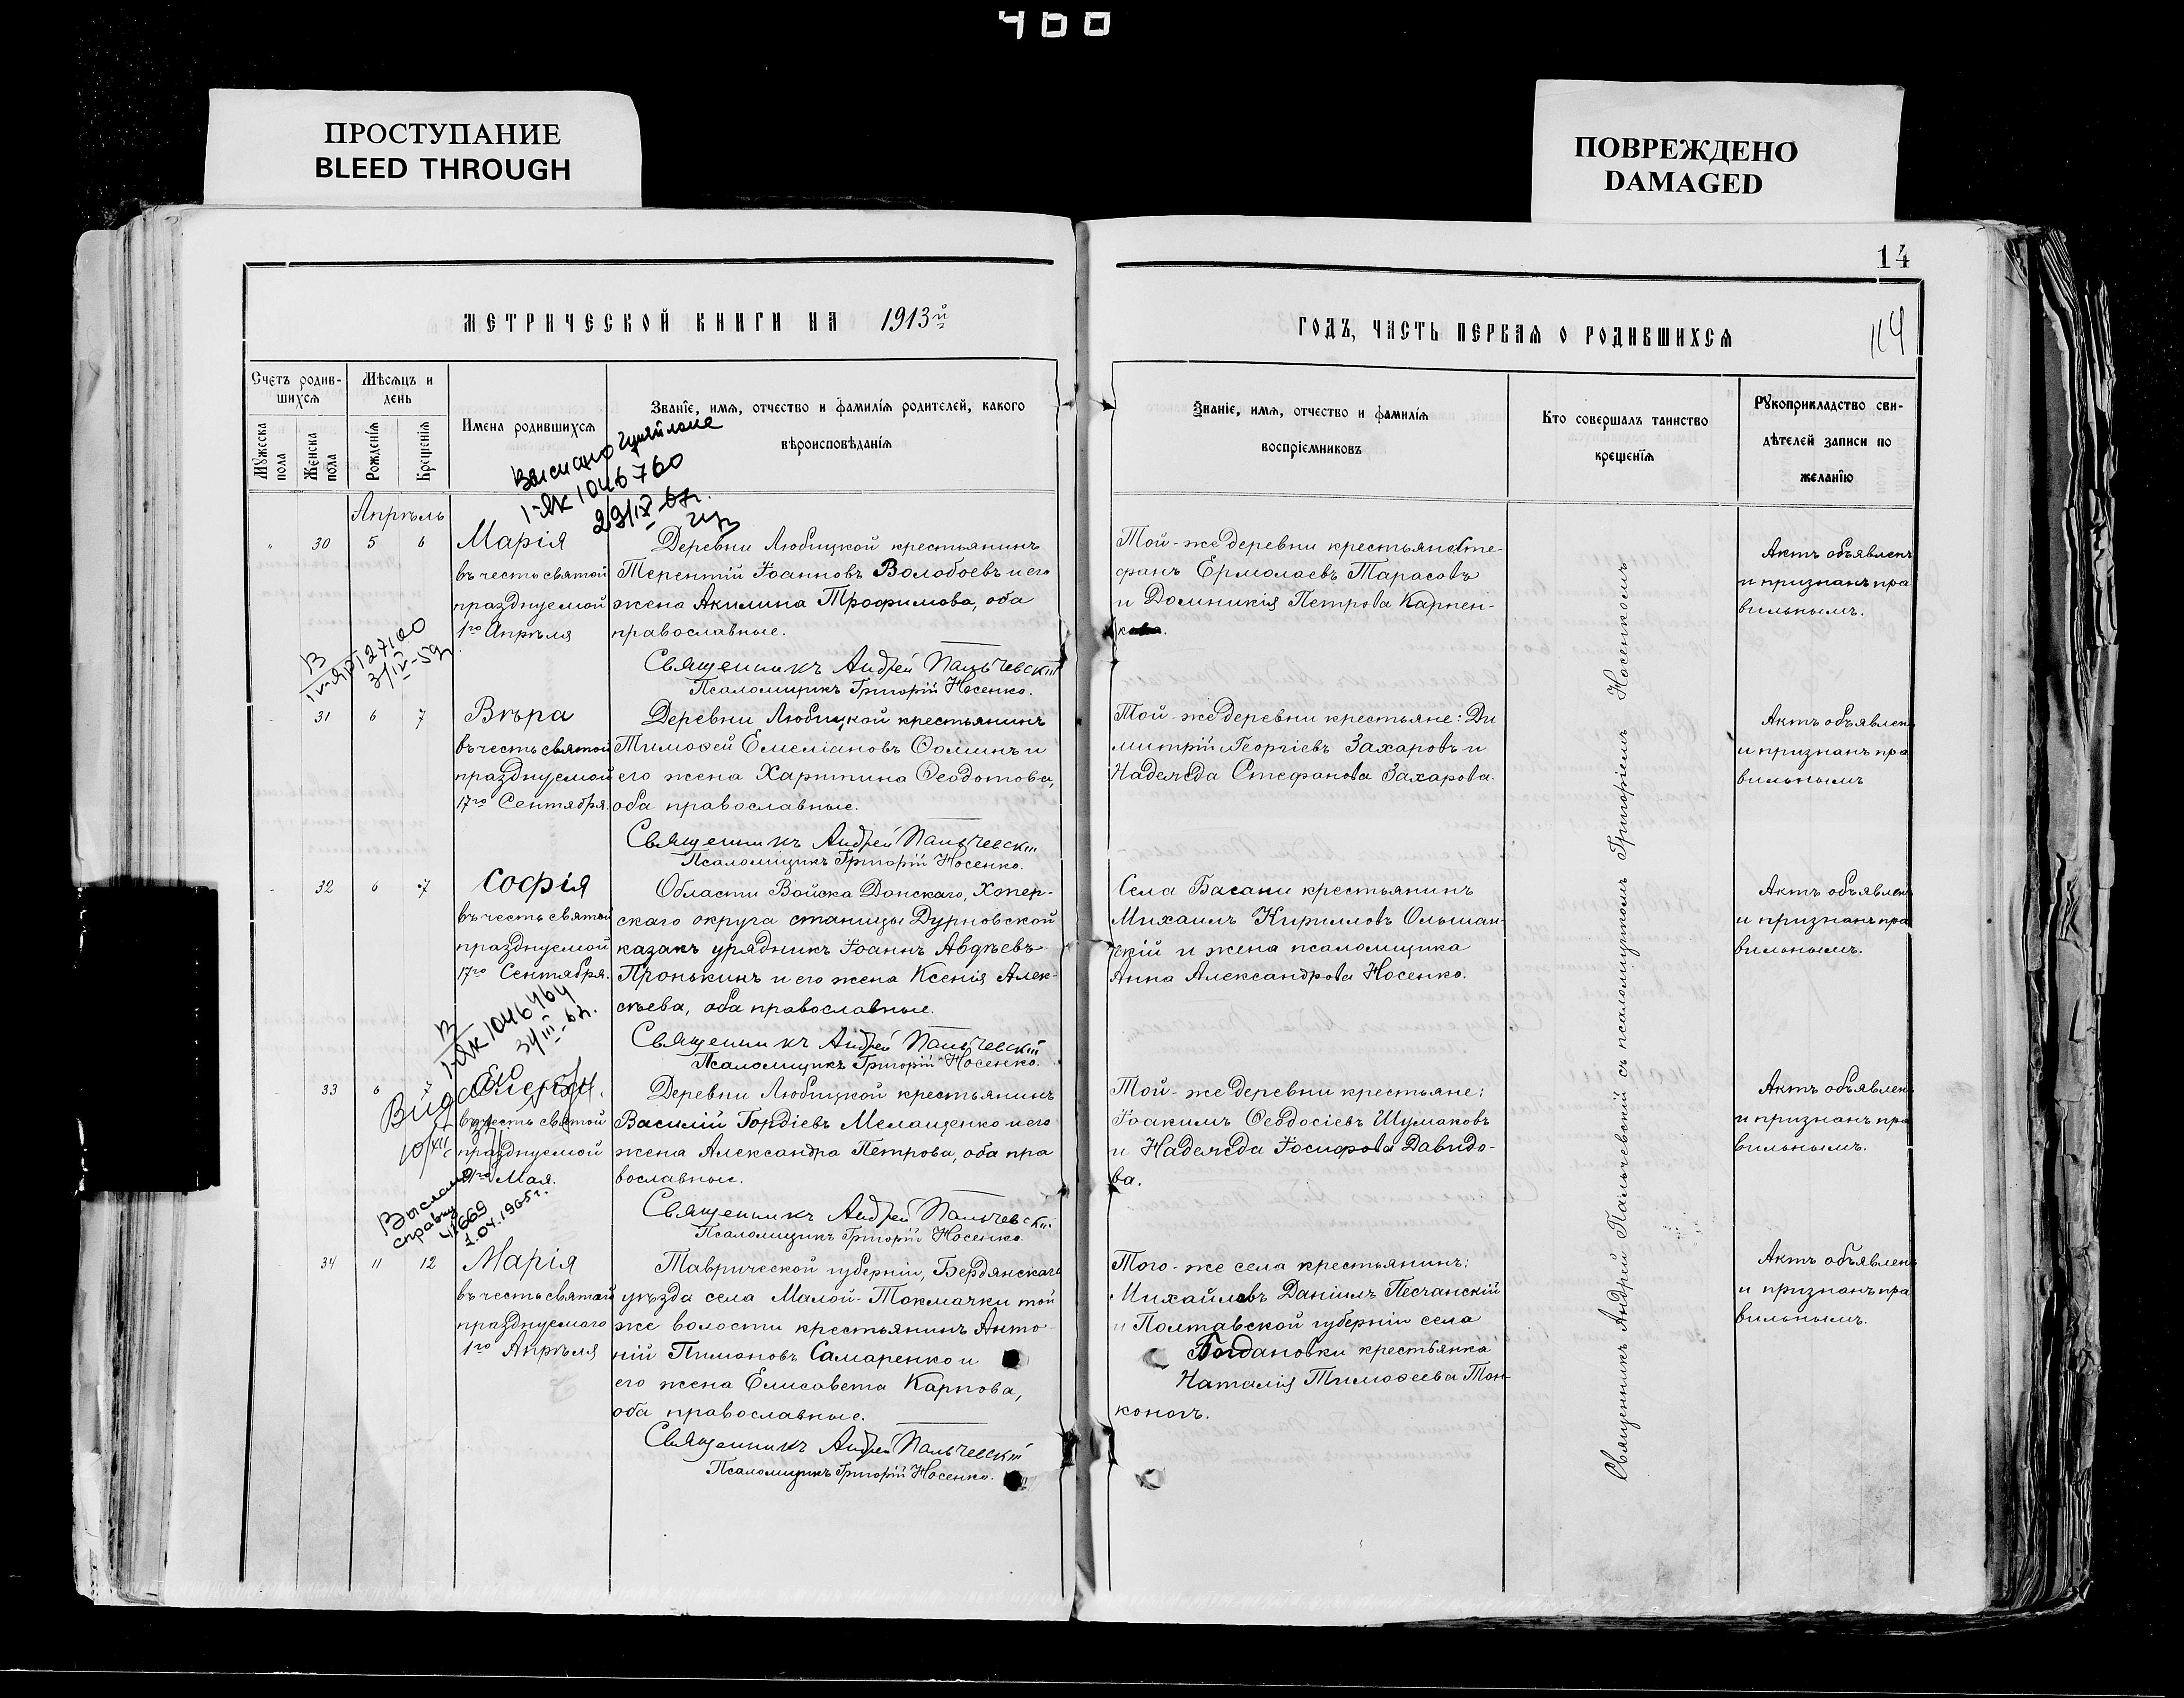 400
ПРОСТУПАНИЕ
BLEED THROUGH
ПОВРЕЖДЕНО
DAMAGED
14
114
МЕТРИЧЕСКОЙ КНИГИ НА 1913й
ГОДЪ, ЧАСТЬ ПЕРВАЯ О РОДИВШИХСЯ
Счетъ родив-
шихся
Мѣсяцъ и
день
Мужеска
пола
Женска
пола
Рожденія
Крещенія
Имена родившихся
Званіе, имя, отчество и фамилія родителей, какого
вѣроисповѣданія
Званіе, имя, отчество и фамилія
воспріемниковъ
Кто совершалъ таинство
крещенія
Рукоприкладство сви-
дѣтелей записи по
желанію
I-ЯК 1046760
29/IX-67г.
Апрѣль
30 5 6
Марія
въ честь святой
празднуемой
1го Апрѣля
Деревни Любицкой крестьянинъ
Терентій Іоанновъ Волобоевъ и его
жена Акилина Трофимова, оба
православные.
Священникъ Андрей Пальчевскій
Псаломщикъ Григорій Носенко.
Той-же деревни крестьяне Сте-
фанъ Ермолаевъ Тарасовъ
и Домникія Петрова Карпен-
Актъ объявленъ
и признанъ пра
вильнымъ.
31 6 7
Вѣра
въ честь святой
празднуемой
17го Сентября.
Деревни Любицкой крестьянинъ
Тимоѳей Емеліановъ Ѳоминъ и
его жена Харитина Ѳеодотова,
оба православные.
Священникъ Андрей Пальчевскій
Псаломщикъ Григорій Носенко.
Той-же деревни крестьяне: Ди
митрій Георгіевъ Захаровъ и
Надежда Стефанова Захарова.
Актъ объявленъ
и признанъ пра
вильнымъ
32 6 7
Софія
въ честь святой
празднуемой
17го Сентября.
Области Войска Донскаго, Хопер-
скаго округа станицы Дурновской
казакъ урядникъ Іоаннъ Авдѣевъ
Пронькинъ и его жена Ксенія Алек-
сѣева, оба православные.
Священникъ Андрей Пальчевскій
Псаломщикъ Григорій Носенко.
Села Басани крестьянинъ
Михаилъ Кирилловъ Ольшан-
скій и жена псаломщика
Анна Александрова Носенко.
Актъ объявленъ
и признанъ пра
вильнымъ.
I-ЯК 1046464
33 6 7
въ честь святой
празднуемой
Мая.
Деревни Любицкой крестьянинъ
Василій Гордіевъ Мелащенко и его
жена Александра Петрова, оба пра
вославные.
Священникъ Андрей Пальчевскій
Псаломщикъ Григорій Носенко.
Той-же деревни крестьяне:
Іоакимъ Ѳеодосіевъ Шумаковъ
и Надежда Іосифова Давидо-
ва.
Актъ объявленъ
и признанъ пра
вильнымъ.
Выслано
справку
41669
1.04.1965г.
34 11 12
Марія
въ честь святой
празднуемаго
1го Апрѣля
Таврической губерніи, Бердянскаго
уѣзда села Малой-Токмачки той
же волости крестьянинъ Анто-
ній Пимоновъ Самаренко и
его жена Елисавета Карпова,
оба православные.
Священникъ Андрей Пальчевскій
Псаломщикъ Григорій Носенко.
Того-же села крестьянинъ:
Михайловъ Даніилъ Песчанскій
и Полтавской губерніи села
Богдановки крестьянка
Наталія Тимоѳеева Тон-
коногъ.
Актъ объявленъ
и признанъ пра
вильнымъ.
Священникъ Андрей Пальчевскій съ псаломщикомъ Григоріемъ Носенкомъ